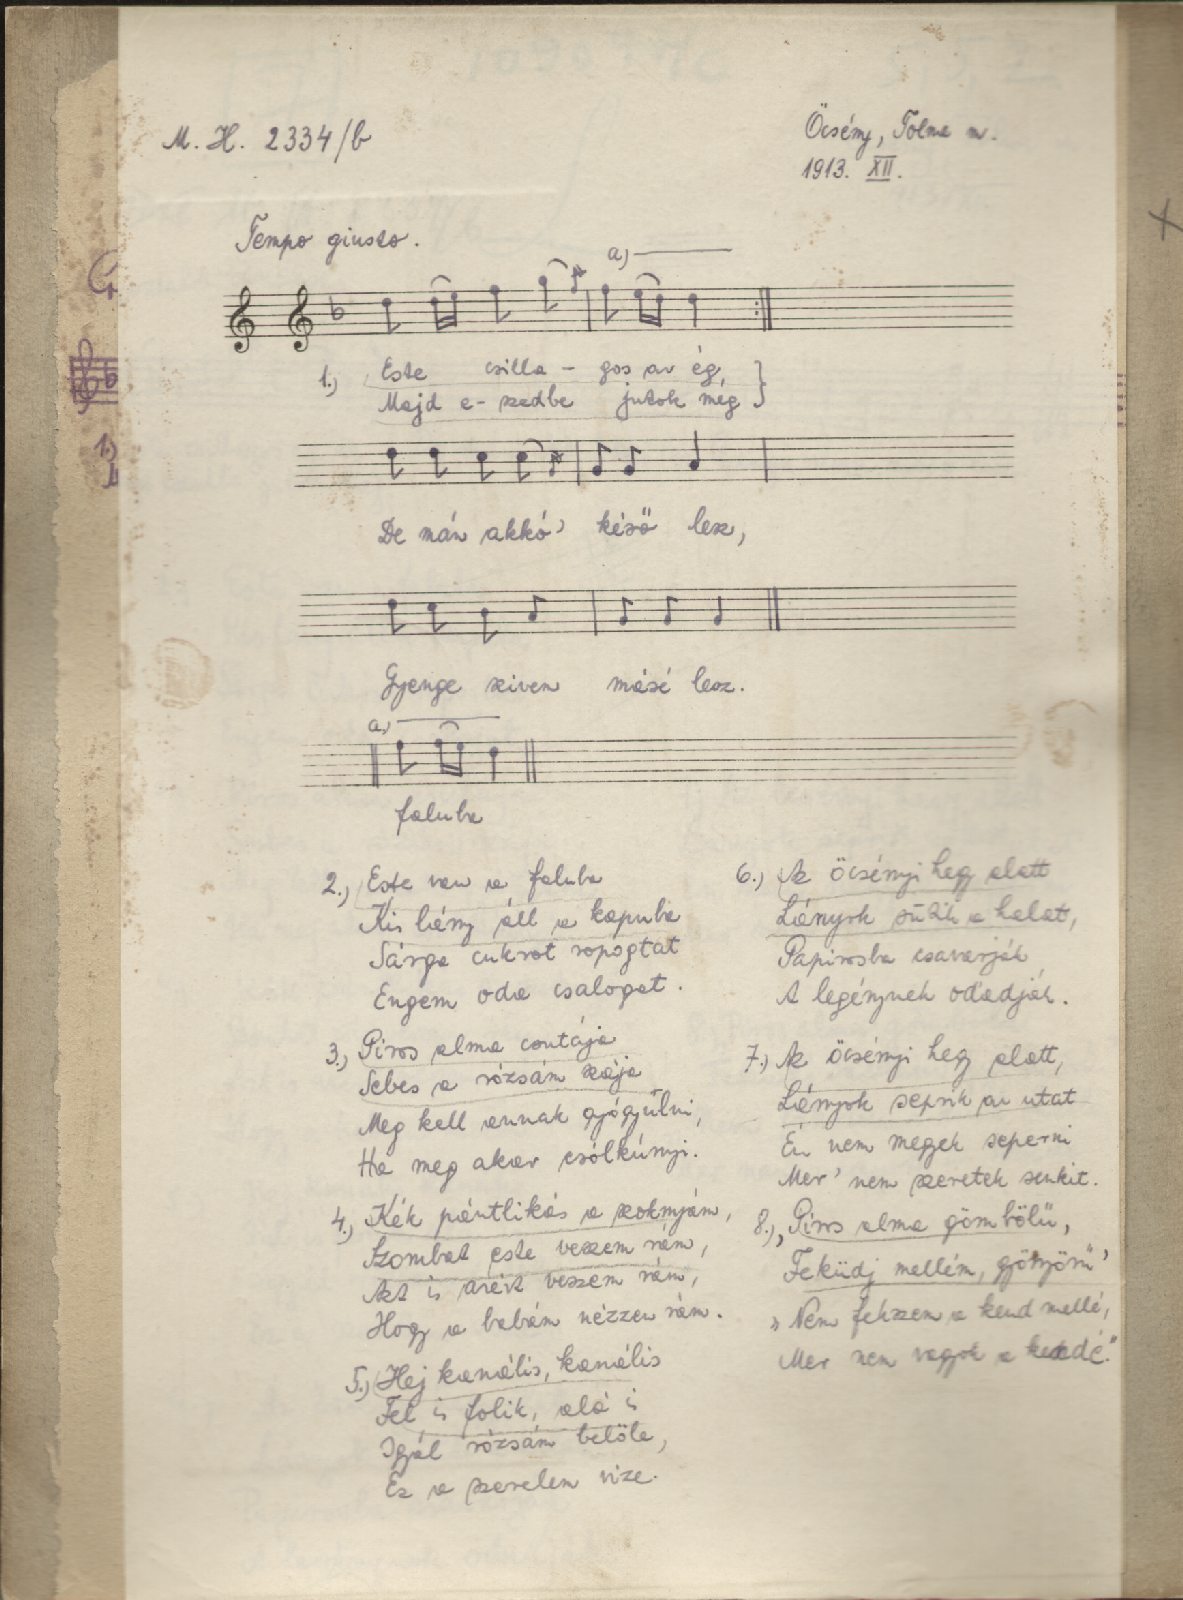 M. H. 2334/b
Öcsény, Tolna m.
1913. XII.
Tempo giusto.
a)
1.) Este csilla - gos az ég,
Majd e - szedbe jutok még
De mán akkó' késő lesz,
Gyenge szivem másé lesz.
a)
faluba
2.) Este van a faluba
Kis lány áll a kapuba
Sárga cukrot ropogtat
Engem oda csalogat.
3.) Piros alma csutája
Sebes a rózsám szája
Meg kell annak gyógyúlni,
Ha meg akar csólkúnyi.
4.) Kék pántlikás a szoknyám,
Szombat este veszem rám,
Azt is azért veszem rám,
Hogy a babám nézzen rám.
5.) Hej kanális, kanális
Fel is folik, alá is
Igyál rózsám belőle,
Ez a szerelem vize.
6.) Az öcsényi hegy alatt
Lányok sütik a halat,
Papirosba csavarják
A legénynek odadják.
7.) Az öcsényi hegy alatt,
Lányok seprik az utat
Én nem megyek seperni
Mer' nem szeretek senkit.
8.) „Piros alma gömbölű,
Feküdj mellém, gyönyörű"
„Nem fekszem a kend mellé,
Mer nem vagyok a kendé."
1.)